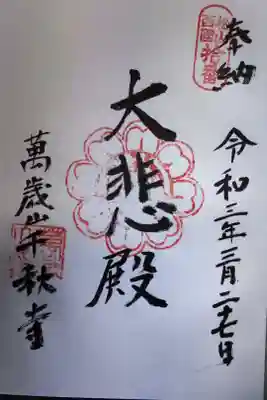 奉納
令和三年三月二十七日
大悲殿
萬歳山千秋寺